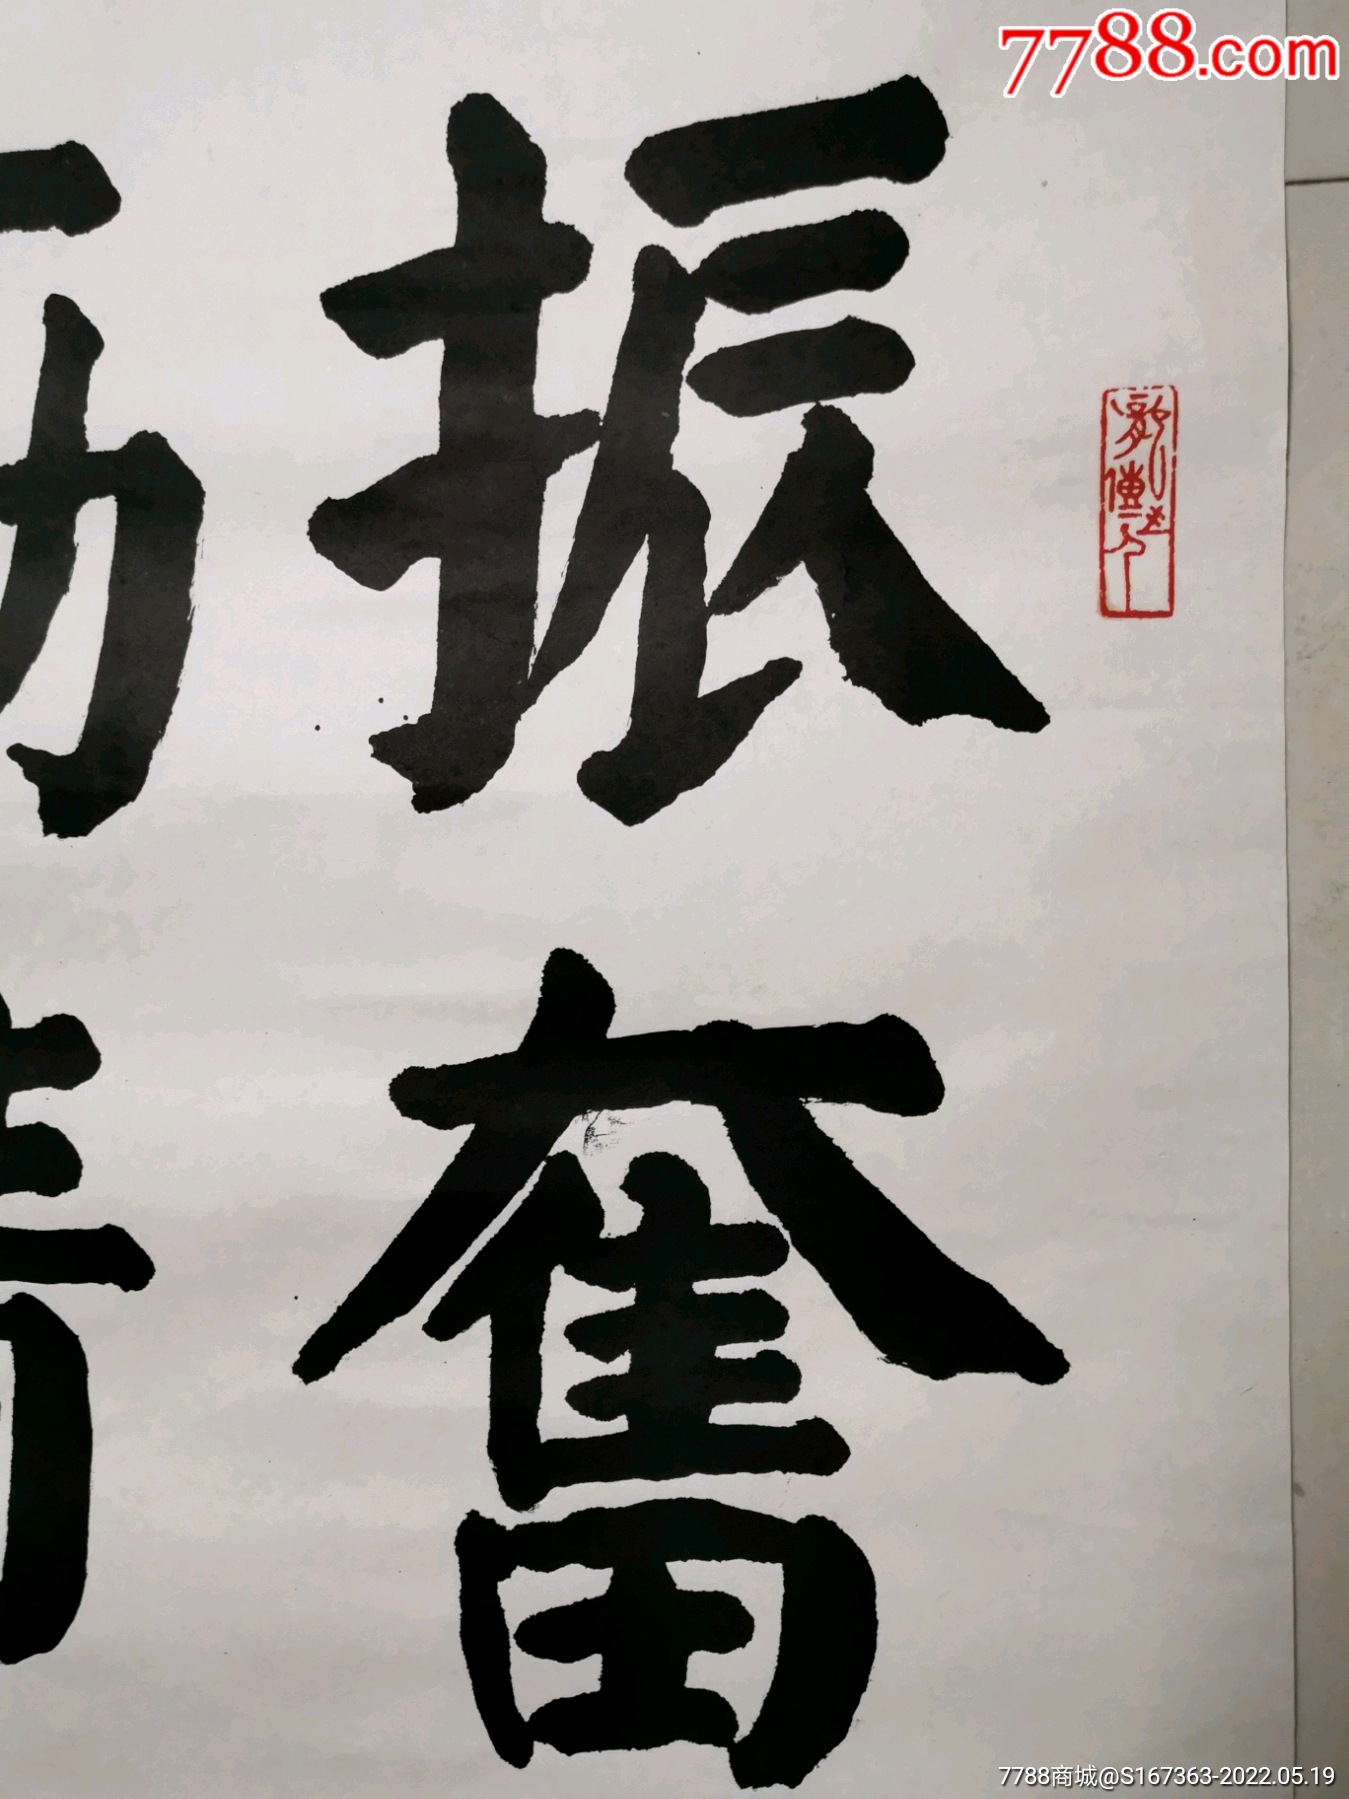 7788.com
振奮
龍之傳人
7788商城@S167363-2022.05.19